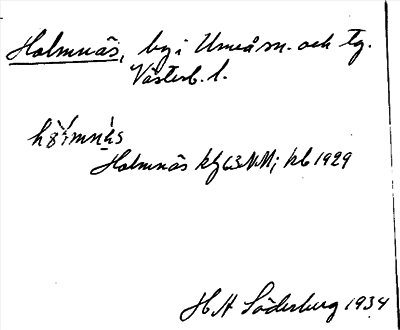 Holmnäs, by i Umeå sn. och tg.
Västerb. l.
Holmnäs kf 63 NV; kb 1929
H A Söderberg 1934